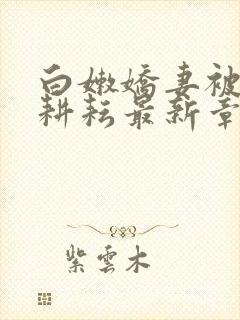 白嫩娇妻被
耕耘最新章
紫云木